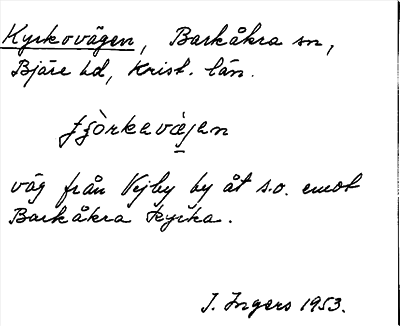 Kyrkovägen, Barkåkra sn,
Bjäre hd, Krist. län.
väg från Vejby by åt s.o. emot
Barkåkra kyrka.
I. Ingers 1953.